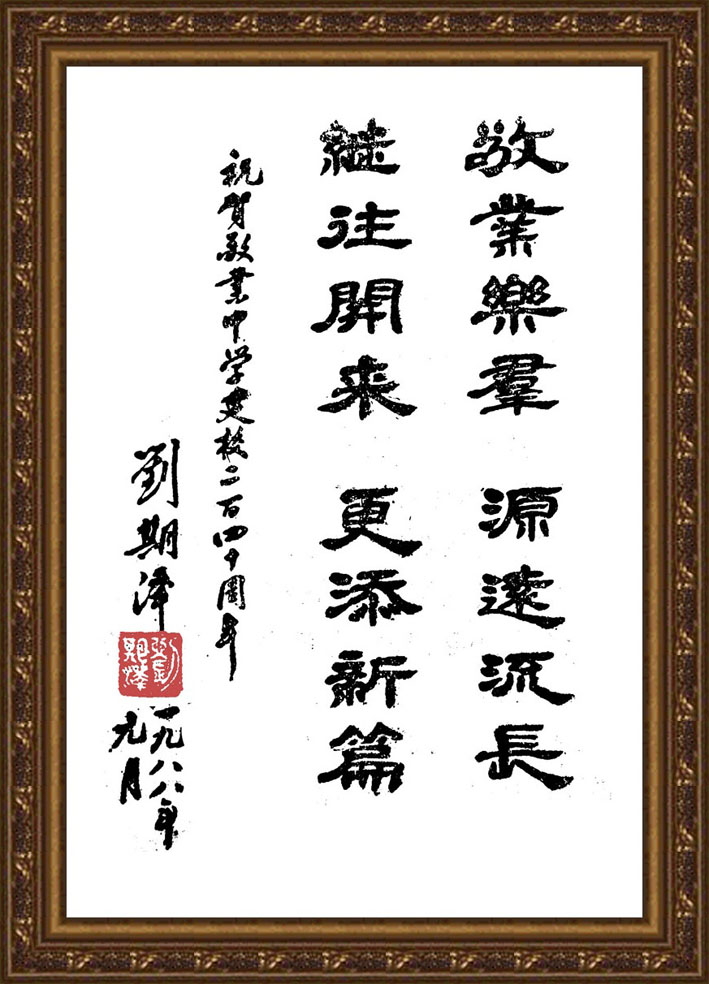 敬業樂羣 源遠流長
継往開来 更添新篇
祝賀敬業中学建校二百四十周年
劉期澤
劉期澤
一九八八年
元月